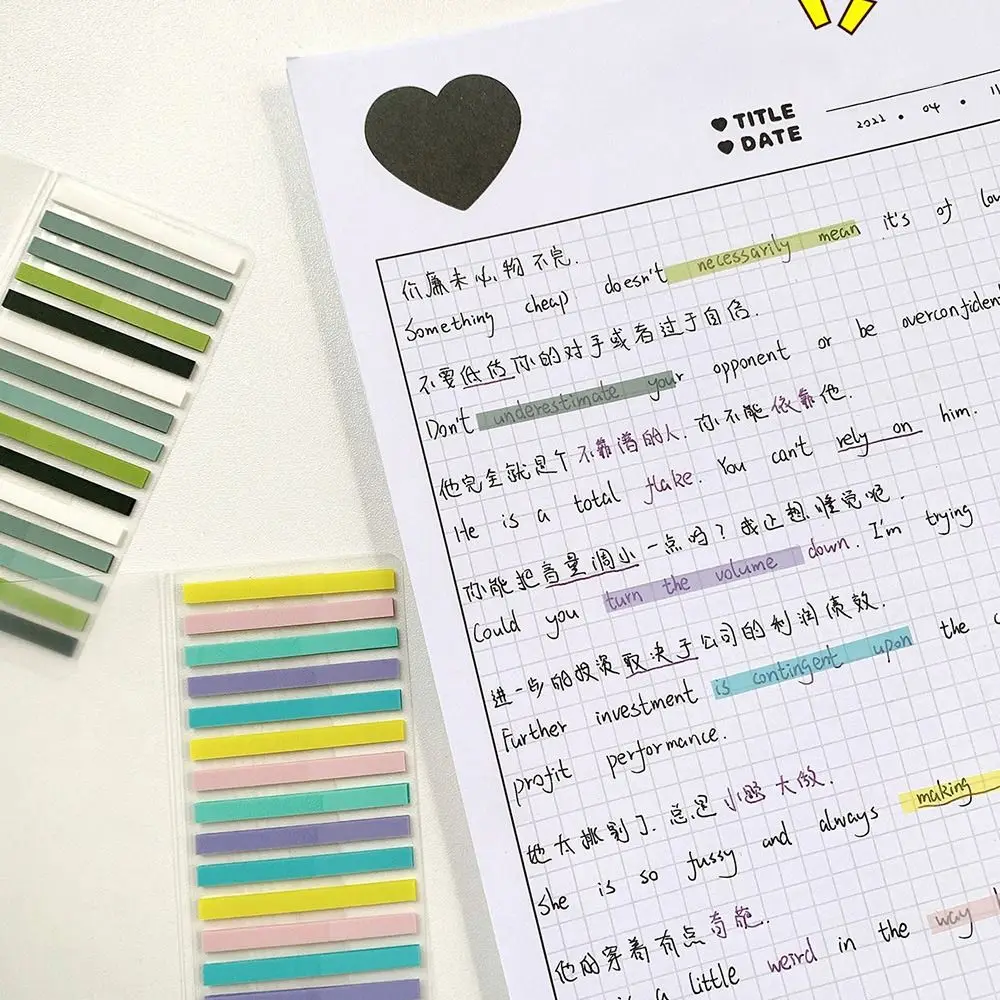 TITLE
DATE
2021 · 04 · 11
价廉未必物不完.
Something cheap doesn't necessarily mean it's of low
不要低估你的对手或者过于自信.
Don't underestimate your opponent or be overconfident
他完全就是个不靠谱的人. 你不能依靠他.
He is a total flake. You can't rely on him.
你能把音量调小一点吗? 我正想睡觉呢.
Could you turn the volume down. I'm trying
进一步的投资取决于公司的利润绩效.
Further investment is contingent upon the
profit performance.
她太挑剔了. 总是小题大做.
She is so fussy and always making
他的穿着有点奇葩.
is a little weird in the way